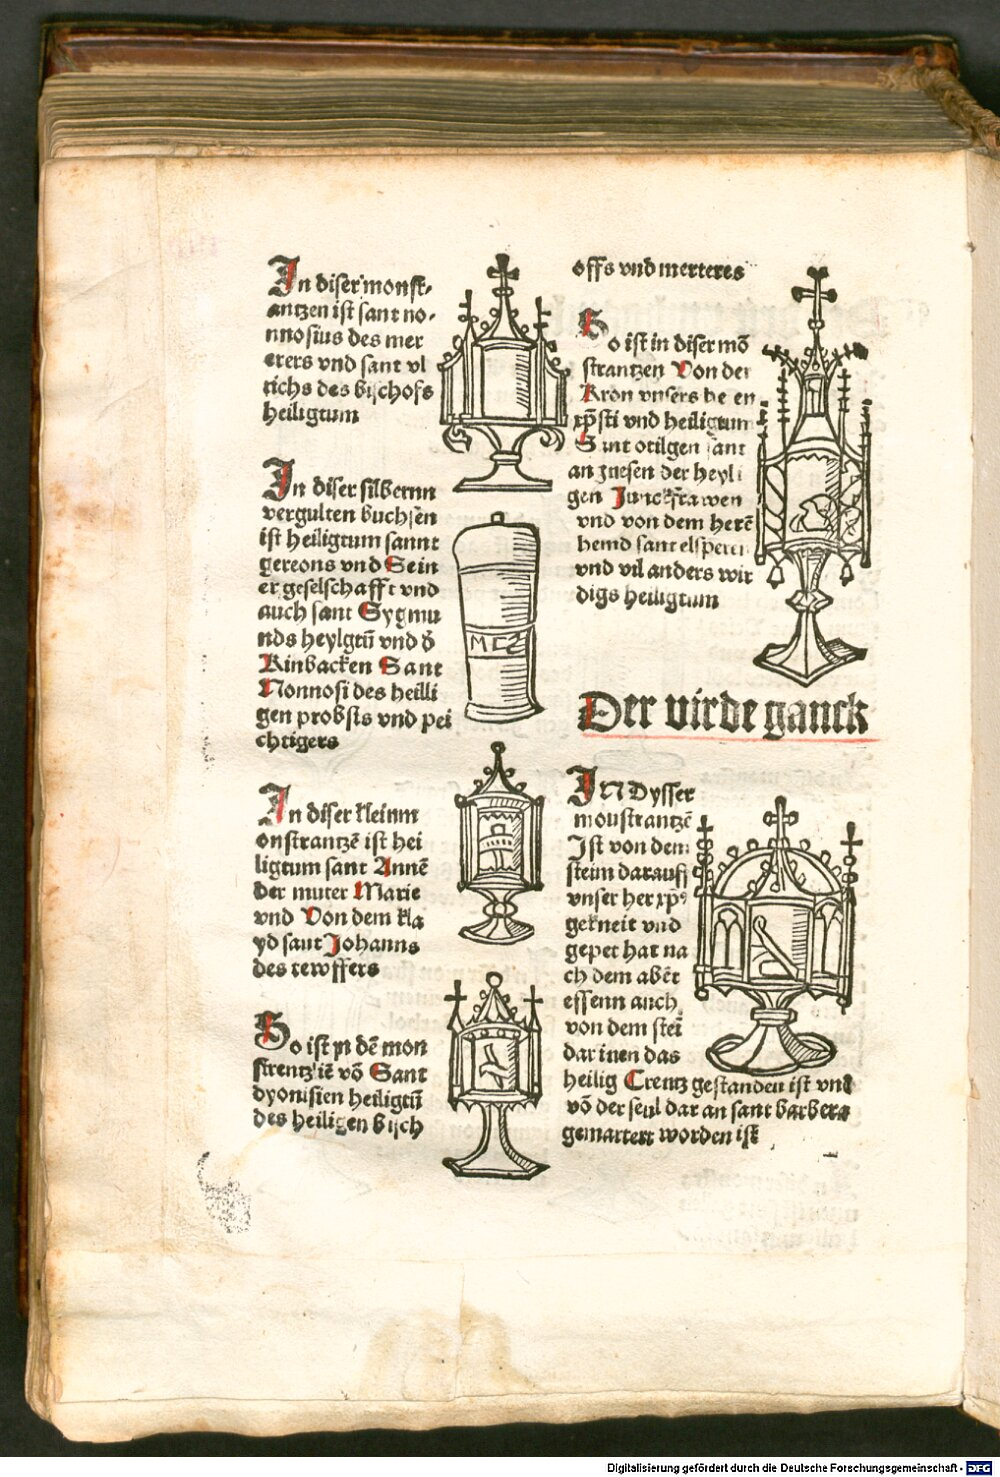 In diser monst-
antzen ist sant no-
nnosius des mer
terers vnd sant vl
richs des bischofs
heiligtum
In diser silbernn
vergulten buchsen
ist heiligtum sannt
gereons vnd Sein
er geselschafft vnd
auch sant Sygmu
nds heylgtū vnd d̄
Kinbacken Sant
Nonnosi des heilli
gen probsts vnd pei
chtigers
MCZ
In diser kleinm
onstrantzē ist hei
ligtum sant Annē
der muter Marie
vnd Von dem kla
yd sant Johanns
des tewffers
So ist yn dē mon
strentz'iē vō Sant
dyonisien heiligtū
des heiligen bisch
offs vnd merteres
So ist in diser mō
strantzen Von der
Kron vnsers he en
xp̄sti vnd heiligtum
Sant otilgen sant
an znesen der heyli
gen Junckfrawen
vnd von dem herē
hemd sant elspeten
vnd vil anders wir
digs heiligtum
Der virde ganck
IN Dysser
monstrantzē
Ist von dem
stein darauff
vnser her xp̄s
gekneit vnd
gepet hat na
ch dem abēt
essenn auch
von dem stei
dar inen das
heilig Creutz gestanden ist vnd
vō der seul dar an sant barbera
gemartert worden ist
Digitalisierung gefördert durch die Deutsche Forschungsgemeinschaft - DFG